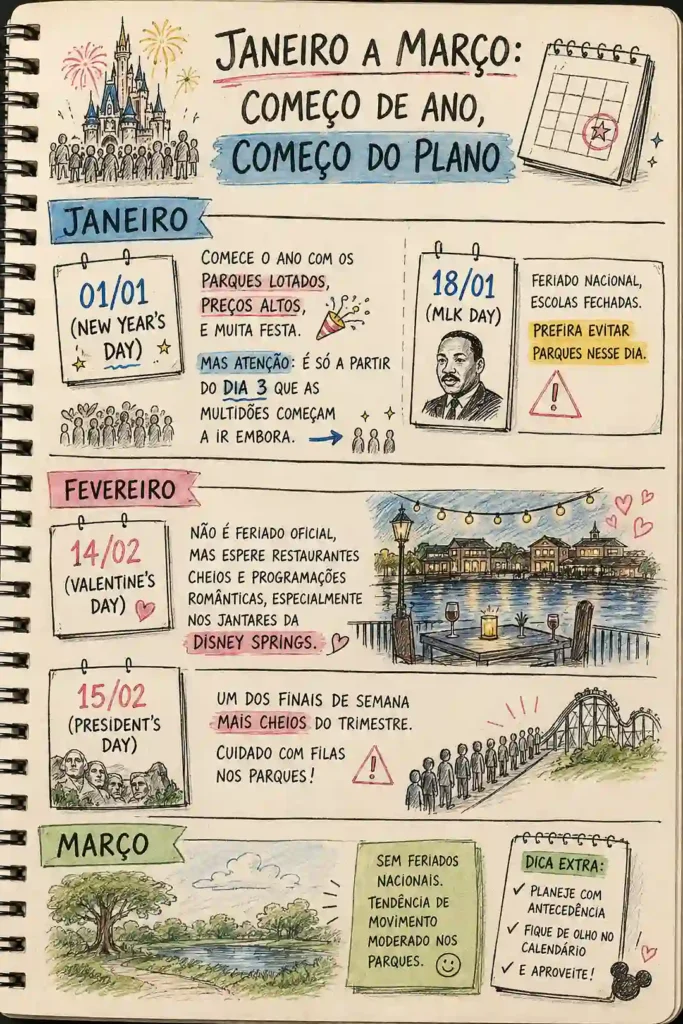 JANEIRO A MARÇO:
COMEÇO DE ANO,
COMEÇO DO PLANO
JANEIRO
01/01
(NEW YEAR'S
DAY)
COMECE O ANO COM OS
PARQUES LOTADOS,
PREÇOS ALTOS,
E MUITA FESTA.
MAS ATENÇÃO: É SÓ A PARTIR
DO DIA 3 QUE AS
MULTIDÕES COMEÇAM
A IR EMBORA.
18/01
(MLK DAY)
FERIADO NACIONAL,
ESCOLAS FECHADAS.
PREFIRA EVITAR
PARQUES NESSE DIA.
FEVEREIRO
14/02
(VALENTINE'S
DAY)
NÃO É FERIADO OFICIAL,
MAS ESPERE RESTAURANTES
CHEIOS E PROGRAMAÇÕES
ROMÂNTICAS, ESPECIALMENTE
NOS JANTARES DA
DISNEY SPRINGS.
15/02
(PRESIDENT'S
DAY)
UM DOS FINAIS DE SEMANA
MAIS CHEIOS DO TRIMESTRE.
CUIDADO COM FILAS
NOS PARQUES!
MARÇO
SEM FERIADOS
NACIONAIS.
TENDÊNCIA DE
MOVIMENTO
MODERADO NOS
PARQUES.
DICA EXTRA:
✓ PLANEJE COM
ANTECEDÊNCIA
✓ FIQUE DE OLHO NO
CALENDÁRIO
✓ E APROVEITE!